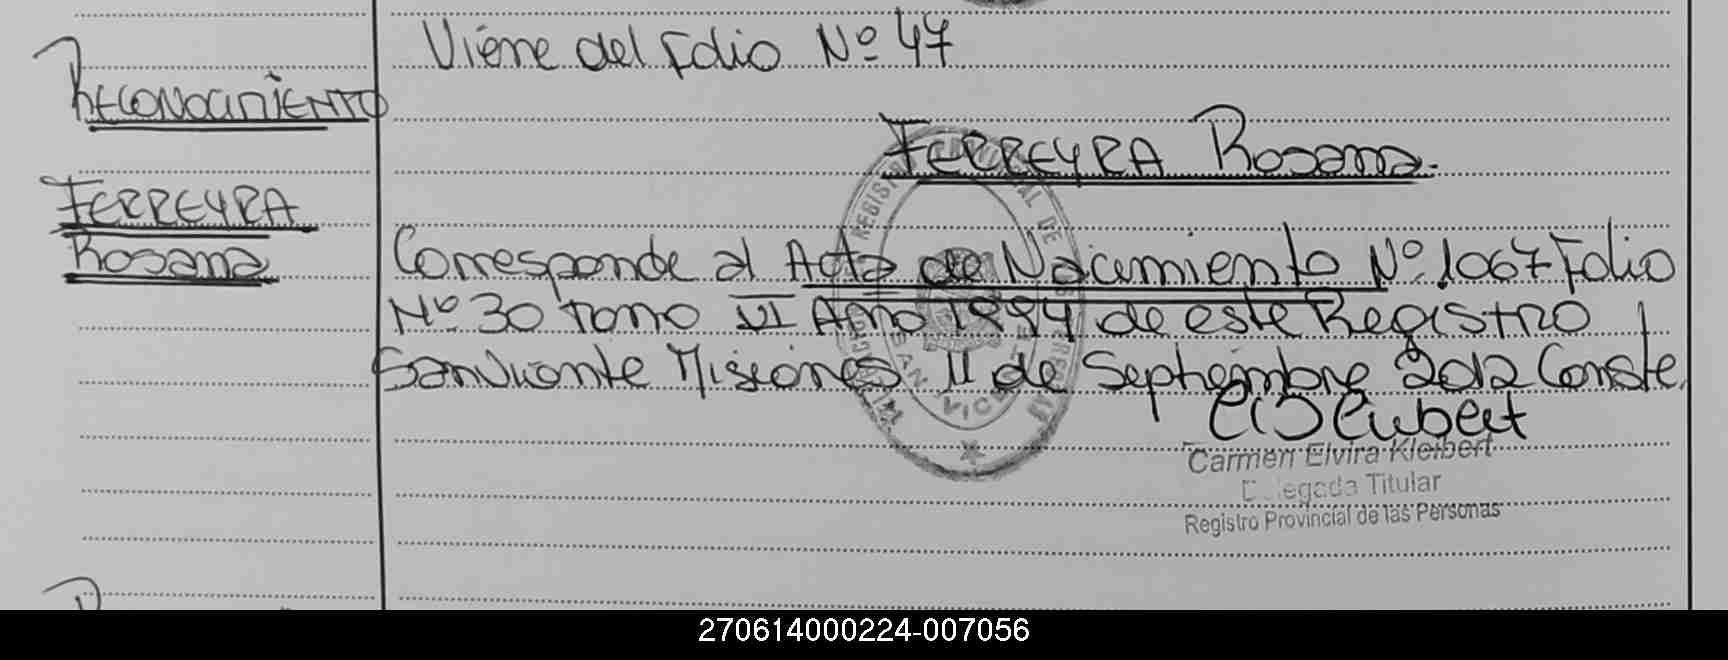 Viene del Folio Nº 47
Reconocimiento
FERREYRA Rosana.
FERREYRA
Rosana
Corresponde al Acta de Nacimiento Nº 1067 Folio
Nº 30 tomo VI Año 1994 de este Registro
San Vicente Misiones 11 de Septiembre 2012 Conste.
Carmen Elvira Kleibert
Delegada Titular
Registro Provincial de las Personas
270614000224-007056